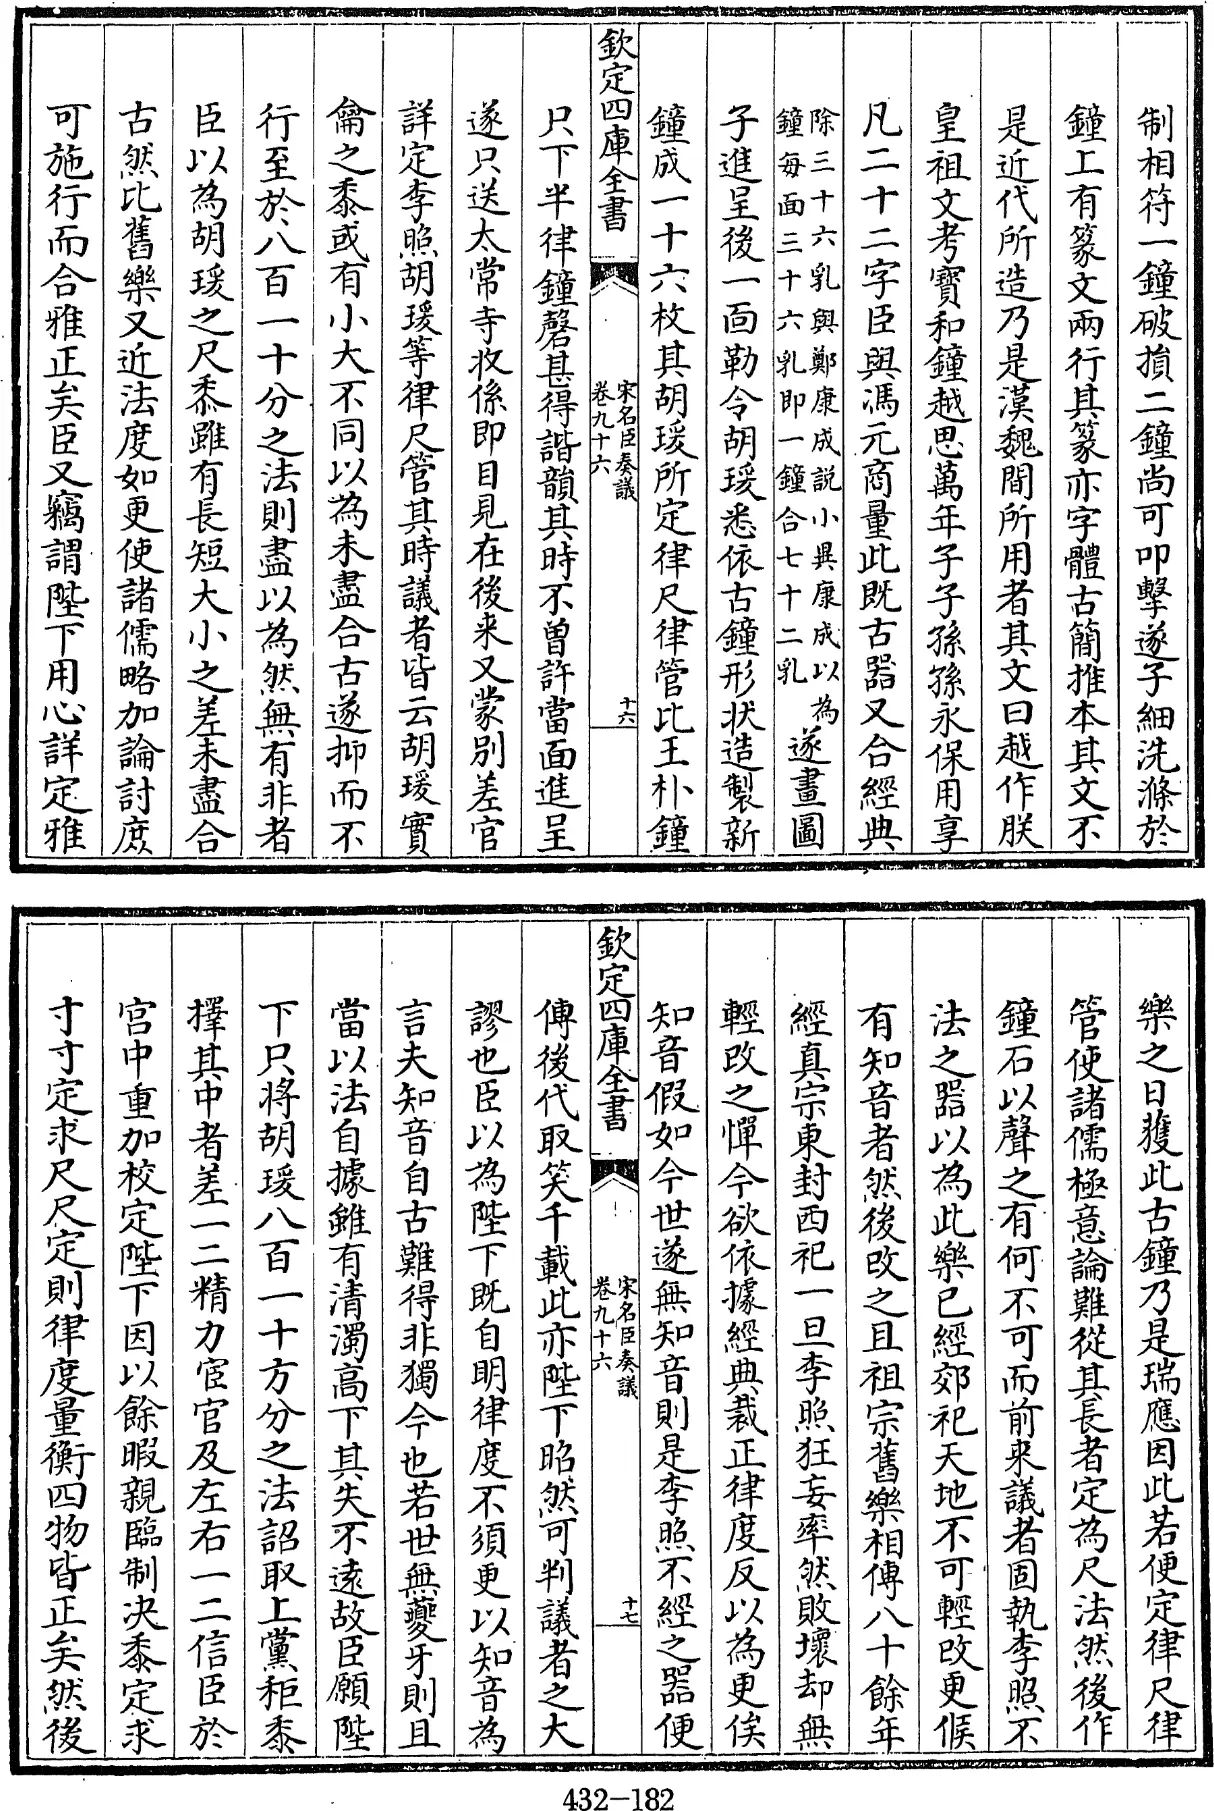 制相符一鐘破損二鐘尚可叩擊遂子細洗滌於
鐘上有篆文兩行其篆亦字體古簡推本其文不
是近代所造乃是漢魏間所用者其文曰越作朕
皇祖文考寶和鐘越思萬年子子孫孫永保用享
凡二十二字臣與馮元商量此既古器又合經典
除三十六乳與鄭康成説小異康成以為
鐘每面三十六乳即一鐘合七十二乳
遂畫圖
子進呈後一面勒令胡瑗悉依古鐘形狀造製新
鐘成一十六枚其胡瑗所定律尺律管比王朴鐘
欽定四庫全書
宋名臣奏議
卷九十六
十六
只下半律鐘磬甚得諧韻其時不曾許當面進呈
遂只送太常寺收係即目見在後來又蒙別差官
詳定李照胡瑗等律尺管其時議者皆云胡瑗實
龠之黍或有小大不同以為未盡合古遂抑而不
行至於八百一十分之法則盡以為然無有非者
臣以為胡瑗之尺黍雖有長短大小之差未盡合
古然比舊樂又近法度如更使諸儒略加論討庶
可施行而合雅正矣臣又竊謂陛下用心詳定雅
樂之日獲此古鐘乃是瑞應因此若便定律尺律
管使諸儒極意論難從其長者定為尺法然後作
鐘石以聲之有何不可而前來議者固執李照不
法之器以為此樂已經郊祀天地不可輕改更候
有知音者然後改之且祖宗舊樂相傳八十餘年
經真宗東封西祀一旦李照狂妄率然敗壞却無
輕改之憚今欲依據經典裁正律度反以為更俟
知音假如今世遂無知音則是李照不經之器便
欽定四庫全書
宋名臣奏議
卷九十六
十七
傳後代取笑千載此亦陛下昭然可判議者之大
謬也臣以為陛下既自明律度不須更以知音為
言夫知音自古難得非獨今也若世無夔牙則且
當以法自據雖有清濁高下其失不遠故臣願陛
下只將胡瑗八百一十方分之法詔取上黨秬黍
擇其中者差一二精力宦官及左右一二信臣於
宫中重加校定陛下因以餘暇親臨制決黍定求
寸寸定求尺尺定則律度量衡四物皆正矣然後
432-182